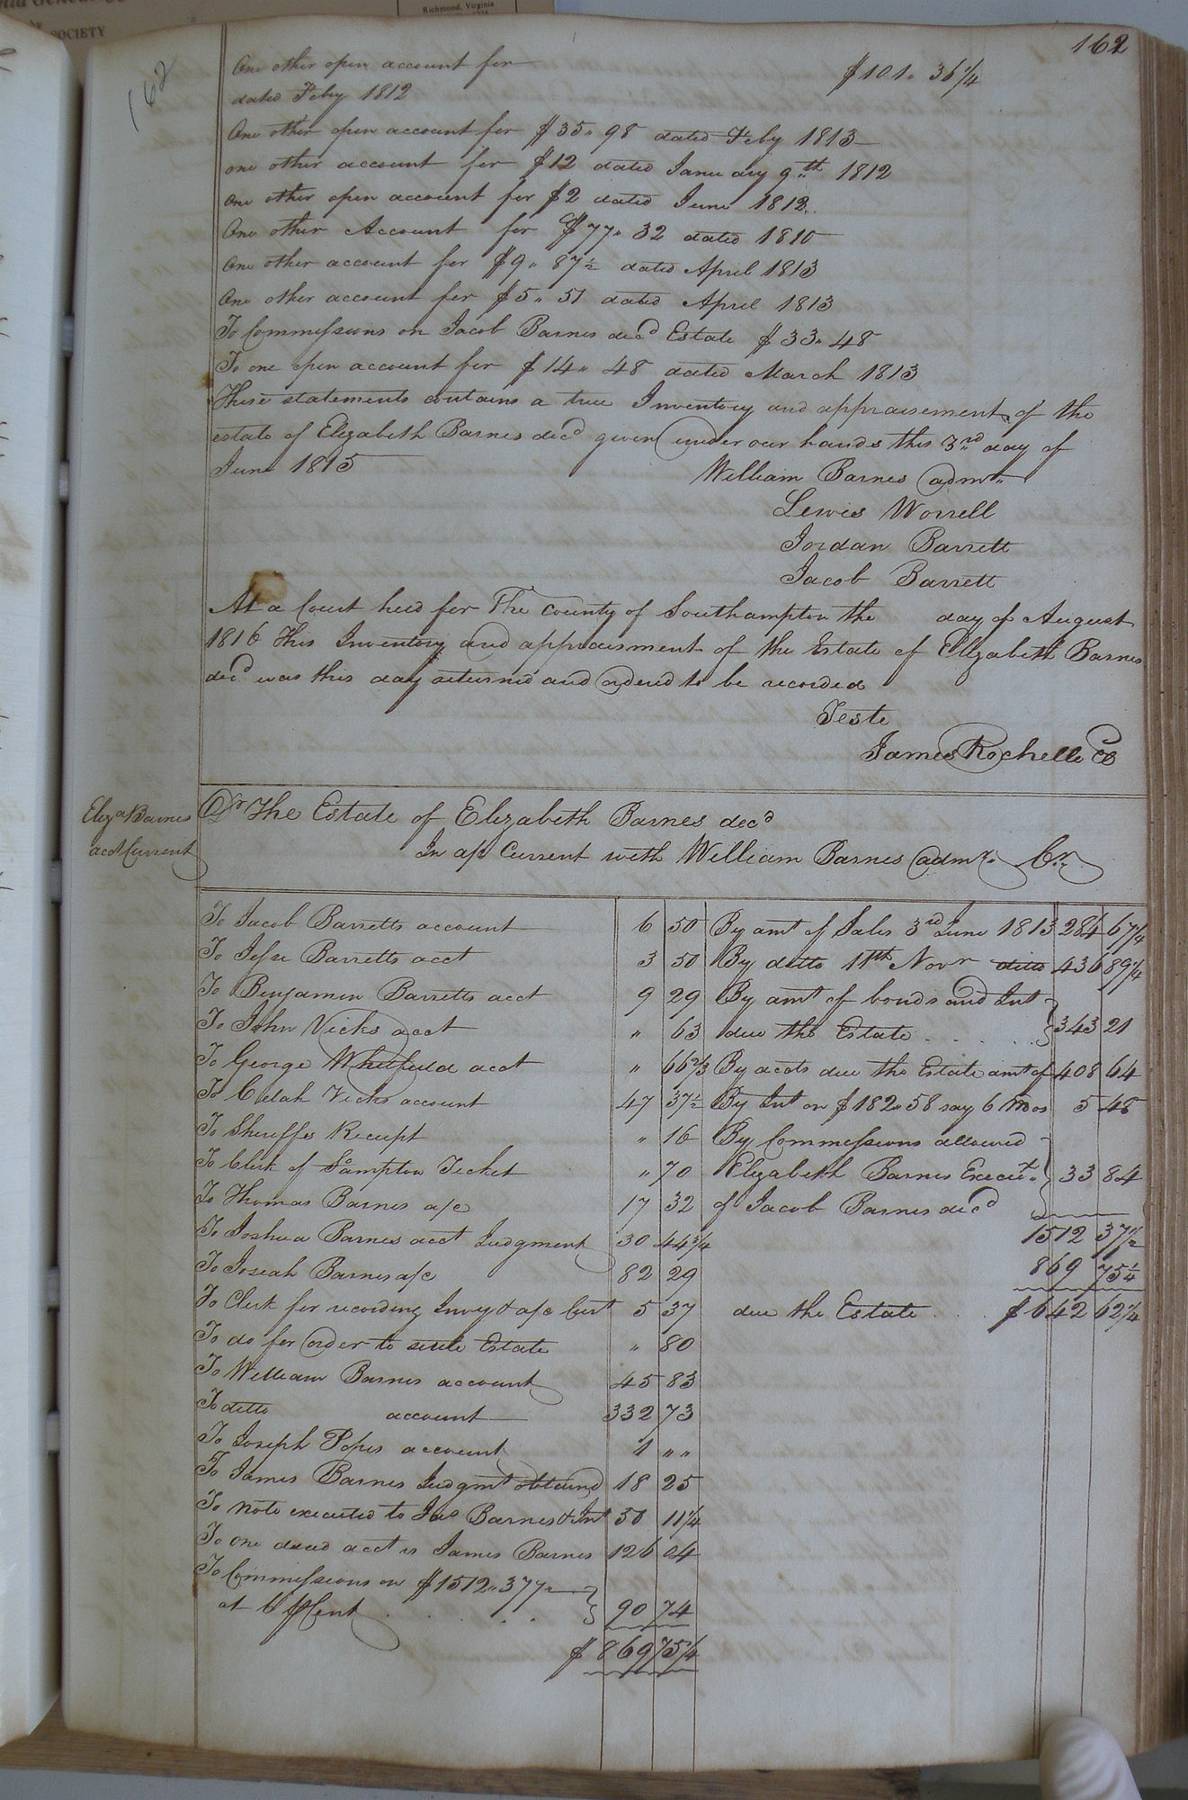 Richmond, Virginia
SOCIETY
162
162
One other open account for $101. 36 1/4
dated Feby 1812
One other open account for $35.. 98 dated Feby 1813
one other account for $12 dated January 9th 1812
one other open account for $2 dated June 1812..
One other Account for $77.. 32 dated 1810
One other account for $9.. 87 1/2 dated April 1813
One other account for $5.. 51 dated April 1813
To Commissions on Jacob Barnes decd Estate $33.. 48
To one open account for $14.. 48 dated March 1813
These statements contains a true Inventory and appraisement of the
estate of Elizabeth Barnes decd given under our hands this 3rd day of
June 1815
William Barnes admr
Lewis Worrell
Jordan Barrett
Jacob Barrett
At a Court held for The County of Southampton the day of August
1816 This Inventory and appraisment of the Estate of Elizabeth Barnes
decd was this day returned and ordered to be recorded
Teste
James Rochelle CC
Eliza Barnes
acct Current
Dr The Estate of Elizabeth Barnes decd
In a/c Current with William Barnes admr. Cr.
To Jacob Barretts account 6 50
To Jesse Barretts acct 3 50
To Benjamin Barretts acct 9 29
To John Vicks acct " 63
To George Whitfield acct " 66 2/3
To Celah Vicks account 47 37 1/2
To Sheriffs Receipt " 16
To Clerk of So ampton Ticket " 70
To Thomas Barnes a/c 17 32
To Joshua Barnes acct Judgment 30 44 3/4
To Josiah Barnes a/c 82 29
To Clerk for recording Invy & a/c Curt 5 37
To do for order to settle Estate " 80
To William Barnes account 45 83
To ditto account 332 73
To Joseph Popes account 1 " "
To James Barnes Judgmt obtained 18 25
To note executed to Jas Barnes & Int 50 11 1/4
To one acct is James Barnes 126 04
To Commissions on $1512.. 37 1/2
at 6 P Cent 90 74
$ 869 75 1/4
By amt of Sales 3rd June 1813 284 67 1/4
By ditto 11th Novr ditto 436 89 1/4
By amt of bonds and Int
due the Estate 343 21
By accts due the Estate amt of 408 64
By Int on $182.. 58 say 6 mos 5 48
By Commissions allowed
Elizabeth Barnes Execut. 33 84
of Jacob Barnes decd
1512 37 1/2
869 75 1/4
due the Estate $ 642 62 1/4